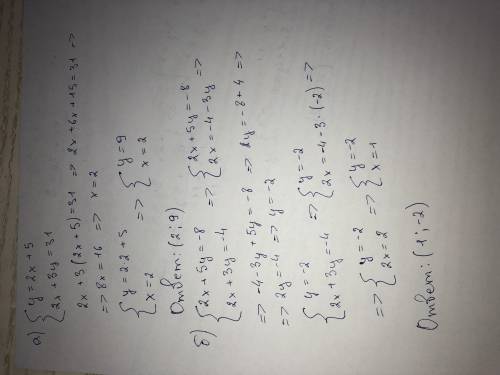 а) { y = 2x + 5
2x + 3y = 31
2x + 3(2x + 5) = 31 => 2x + 6x + 15 = 31 =>
=> 8x = 16 => x = 2
{ y = 2·2 + 5 => { y = 9
x = 2 x = 2
Ответ: (2; 9)
б) { 2x + 5y = -8 => { 2x + 5y = -8 =>
2x + 3y = -4 2x = -4 - 3y
=> -4 - 3y + 5y = -8 => 2y = -8 + 4 =>
=> 2y = -4 => y = -2
{ y = -2 => { y = -2
2x + 3y = -4 2x = -4 - 3·(-2) =>
=> { y = -2 => { y = -2
2x = 2 x = 1
Ответ: (1; -2)